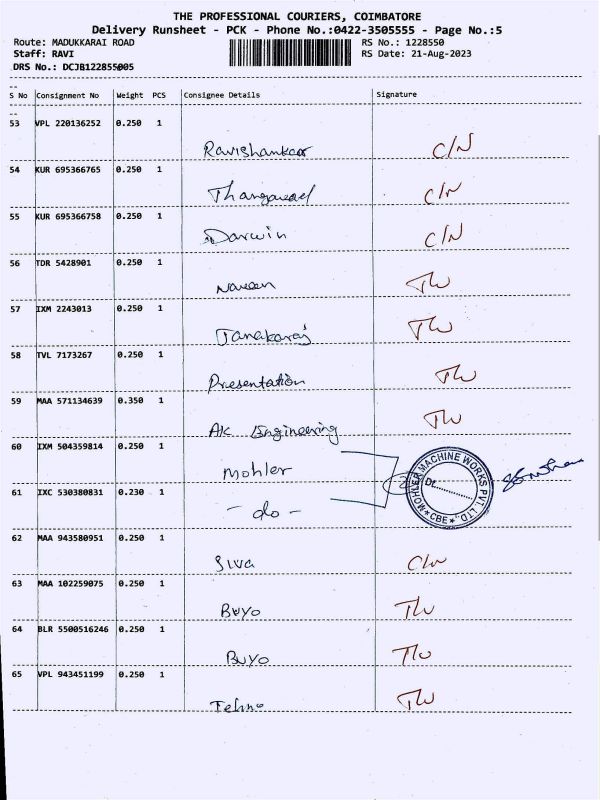 THE PROFESSIONAL COURIERS, COIMBATORE
Delivery Runsheet - PCK - Phone No.:0422-3505555 - Page No.:5
Route: MADUKKARAI ROAD RS No.: 1228550
Staff: RAVI RS Date: 21-Aug-2023
DRS No.: DCJB122855005
S No Consignment No Weight PCS Consignee Details Signature
53 VPL 220136252 0.250 1
Ravishankar C/N
54 KUR 695366765 0.250 1
Thangavel C/N
55 KUR 695366758 0.250 1
Darwin C/N
56 TDR 5428901 0.250 1
Naveen TW
57 IXM 2243013 0.250 1
Janakaraj TW
58 TVL 7173267 0.250 1
Presentation TW
59 MAA 571134639 0.350 1
AK Engineering TW
60 IXM 504359814 0.250 1
Mohler
MOHLER MACHINE WORKS PVT. LTD.
Dt.
* CBE *
61 IXC 530380831 0.230 1
- do -
62 MAA 943580951 0.250 1
Siva C/N
63 MAA 102259075 0.250 1
Buyo TW
64 BLR 5500516246 0.250 1
Buyo TW
65 VPL 943451199 0.250 1
TW